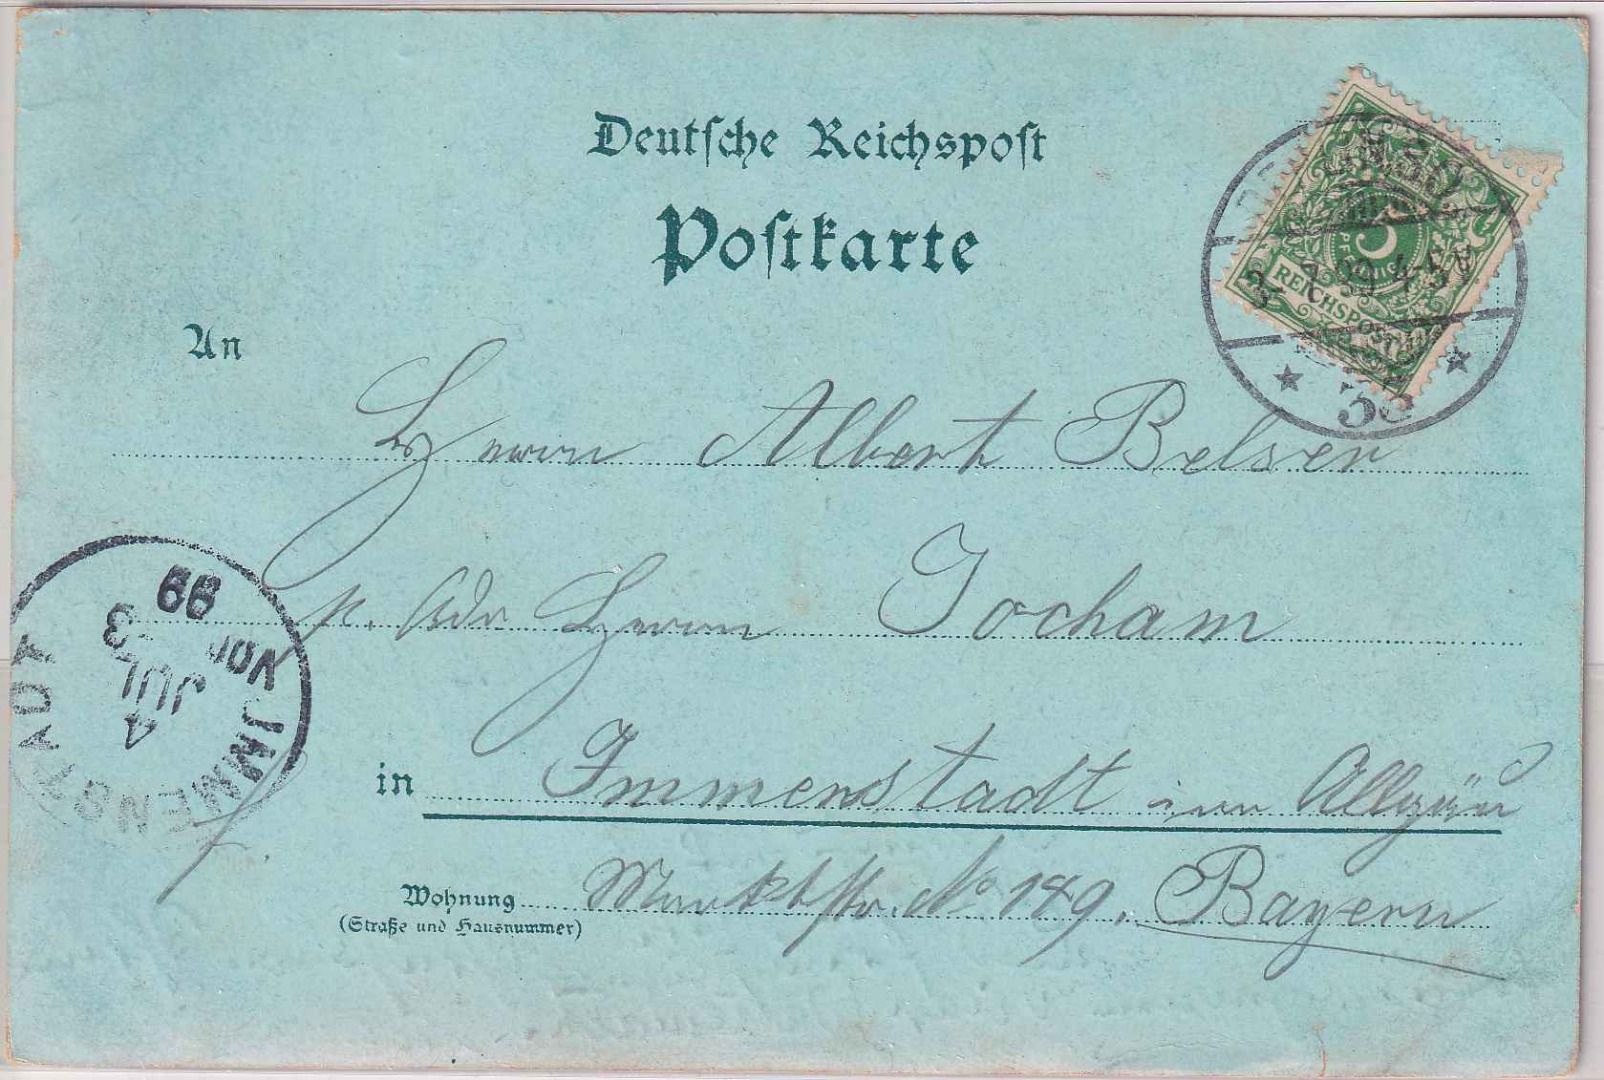 Deutsche Reichspost
Postkarte
An
Herrn Albert Belser
p. Adr Herrn Jocham
in Immenstadt im Allgäu
Wohnung Marktstr. No 149. Bayern
(Straße und Hausnummer)
REICHSPOST
5
PFENNIG
3 7 99 4-5 N
35
IMMENSTADT
4
JUL
3
Vor
99